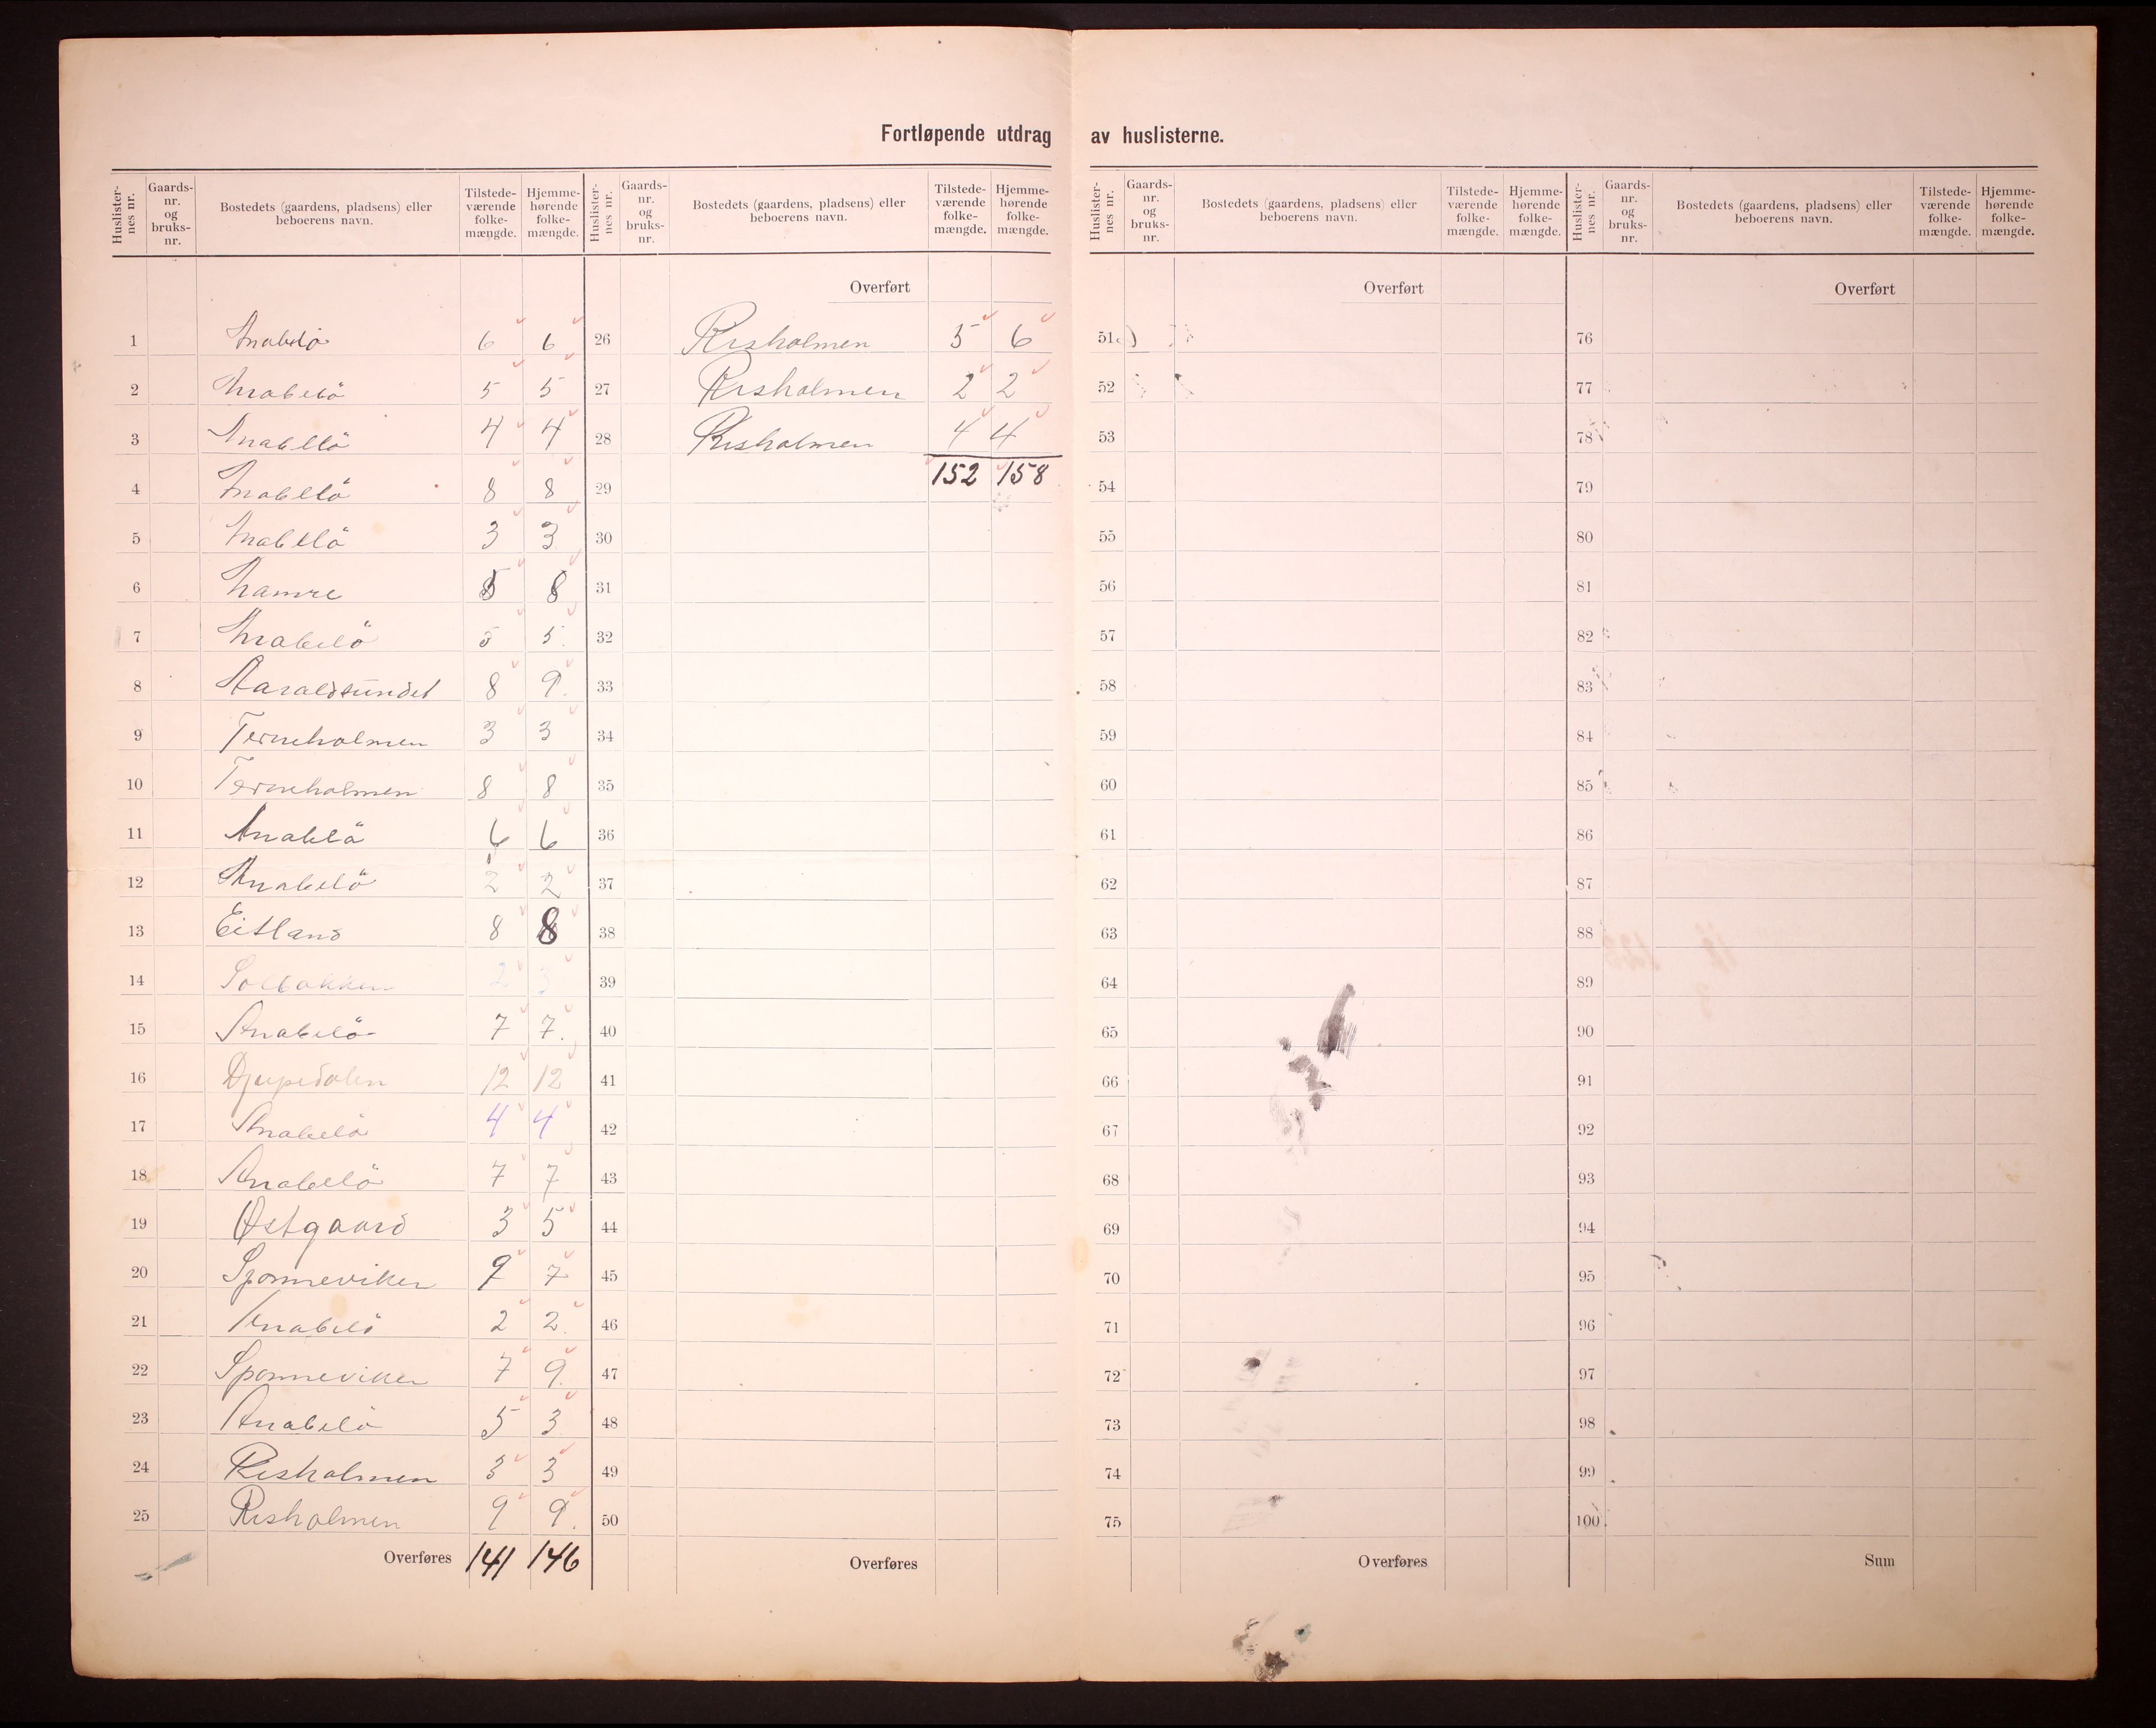 Fortløpende utdrag av huslisterne.
Huslisternes nr. Gaards-nr. og bruks-nr. Bostedets (gaardens, pladsens) eller beboerens navn. Tilstede-værende folke-mængde. Hjemme-hørende folke-mængde.
1 Anabelö 6 6
2 Anabelö 5 5
3 Anabelö 4 4
4 Anabelö 8 8
5 Anabelö 3 3
6 Hamre 8
7 Anabelö 5 5.
8 Haraldsundet 8 9.
9 Terneholmen 3 3
10 Terneholmen 8 8
11 Anabelö 6 6
12 Anabelö 2 2
13 Eitland 8 8
14 Solbakken 2 3
15 Anabelö 7 7.
16 Djupedalen 12 12
17 Anabelö 4 4
18 Anabelö 7 7
19 Østgaard 3 5
20 Sponneviken 9 7
21 Anabelö 2 2.
22 Sponneviken 7 9.
23 Anabelö 5 3
24 Risholmen 3 3
25 Risholmen 9 9.
Overføres 141 146
Huslisternes nr. Gaards-nr. og bruks-nr. Bostedets (gaardens, pladsens) eller beboerens navn. Tilstede-værende folke-mængde. Hjemme-hørende folke-mængde.
Overført
26 Risholmen 5 6
27 Risholmen 2 2
28 Risholmen 4 4
29 152 158
30
31
32
33
34
35
36
37
38
39
40
41
42
43
44
45
46
47
48
49
50
Overføres
Huslisternes nr. Gaards-nr. og bruks-nr. Bostedets (gaardens, pladsens) eller beboerens navn. Tilstede-værende folke-mængde. Hjemme-hørende folke-mængde.
Overført
51
52
53
54
55
56
57
58
59
60
61
62
63
64
65
66
67
68
69
70
71
72
73
74
75
Overføres
Huslisternes nr. Gaards-nr. og bruks-nr. Bostedets (gaardens, pladsens) eller beboerens navn. Tilstede-værende folke-mængde. Hjemme-hørende folke-mængde.
Overført
76
77
78
79
80
81
82
83
84
85
86
87
88
89
90
91
92
93
94
95
96
97
98
99
100
Sum